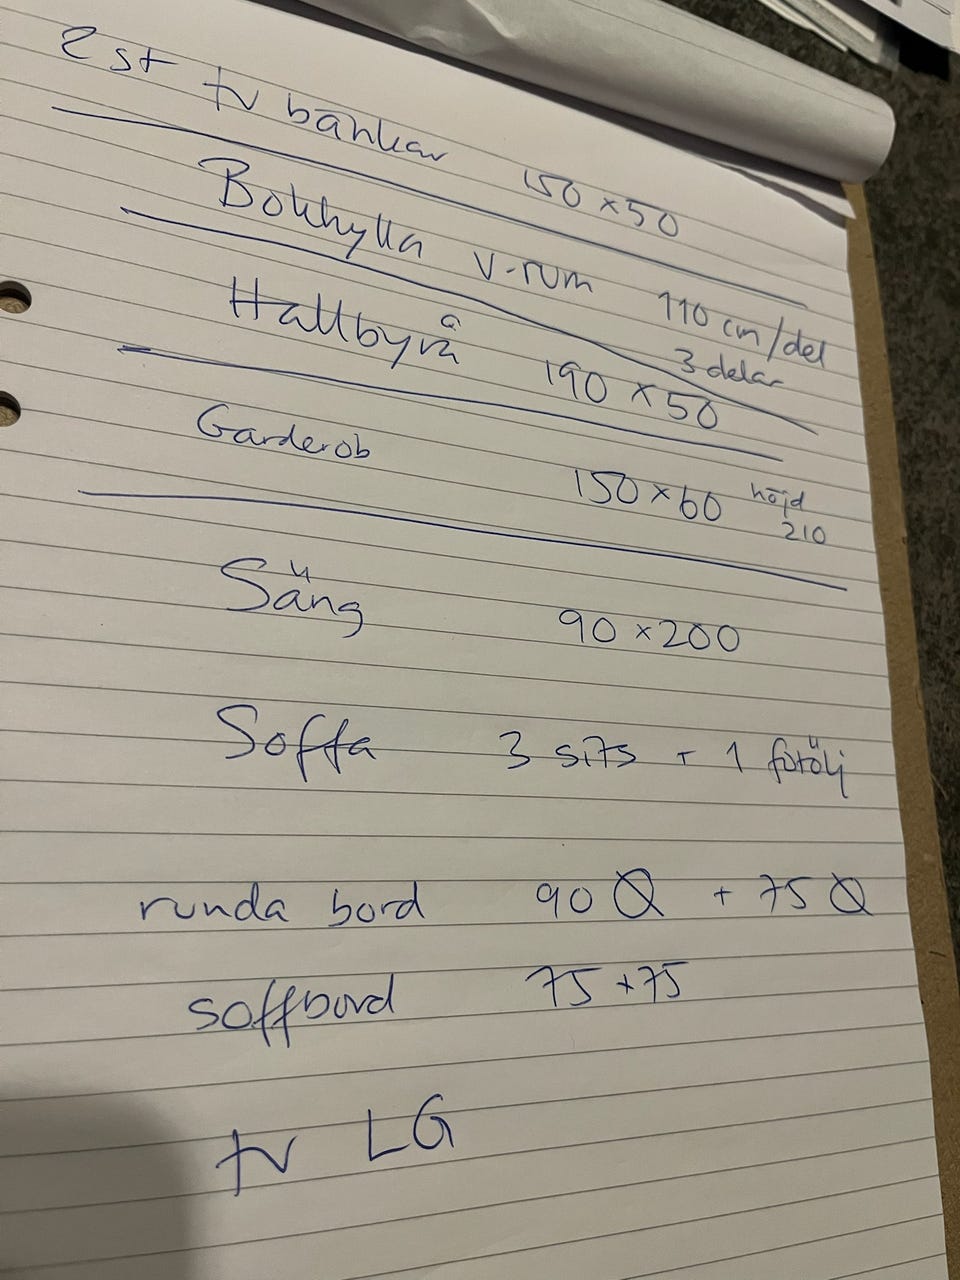 2 st tv bänkar 150 x 50
Bokhylla v-rum 110 cm/del
3 delar
Hallbyrå 190 x 50
Garderob 150 x 60 höjd
210
Säng 90 x 200
Soffa 3 sits + 1 fötölj
runda bord 90 Ø + 75 Ø
soffbord 75 + 75
tv LG